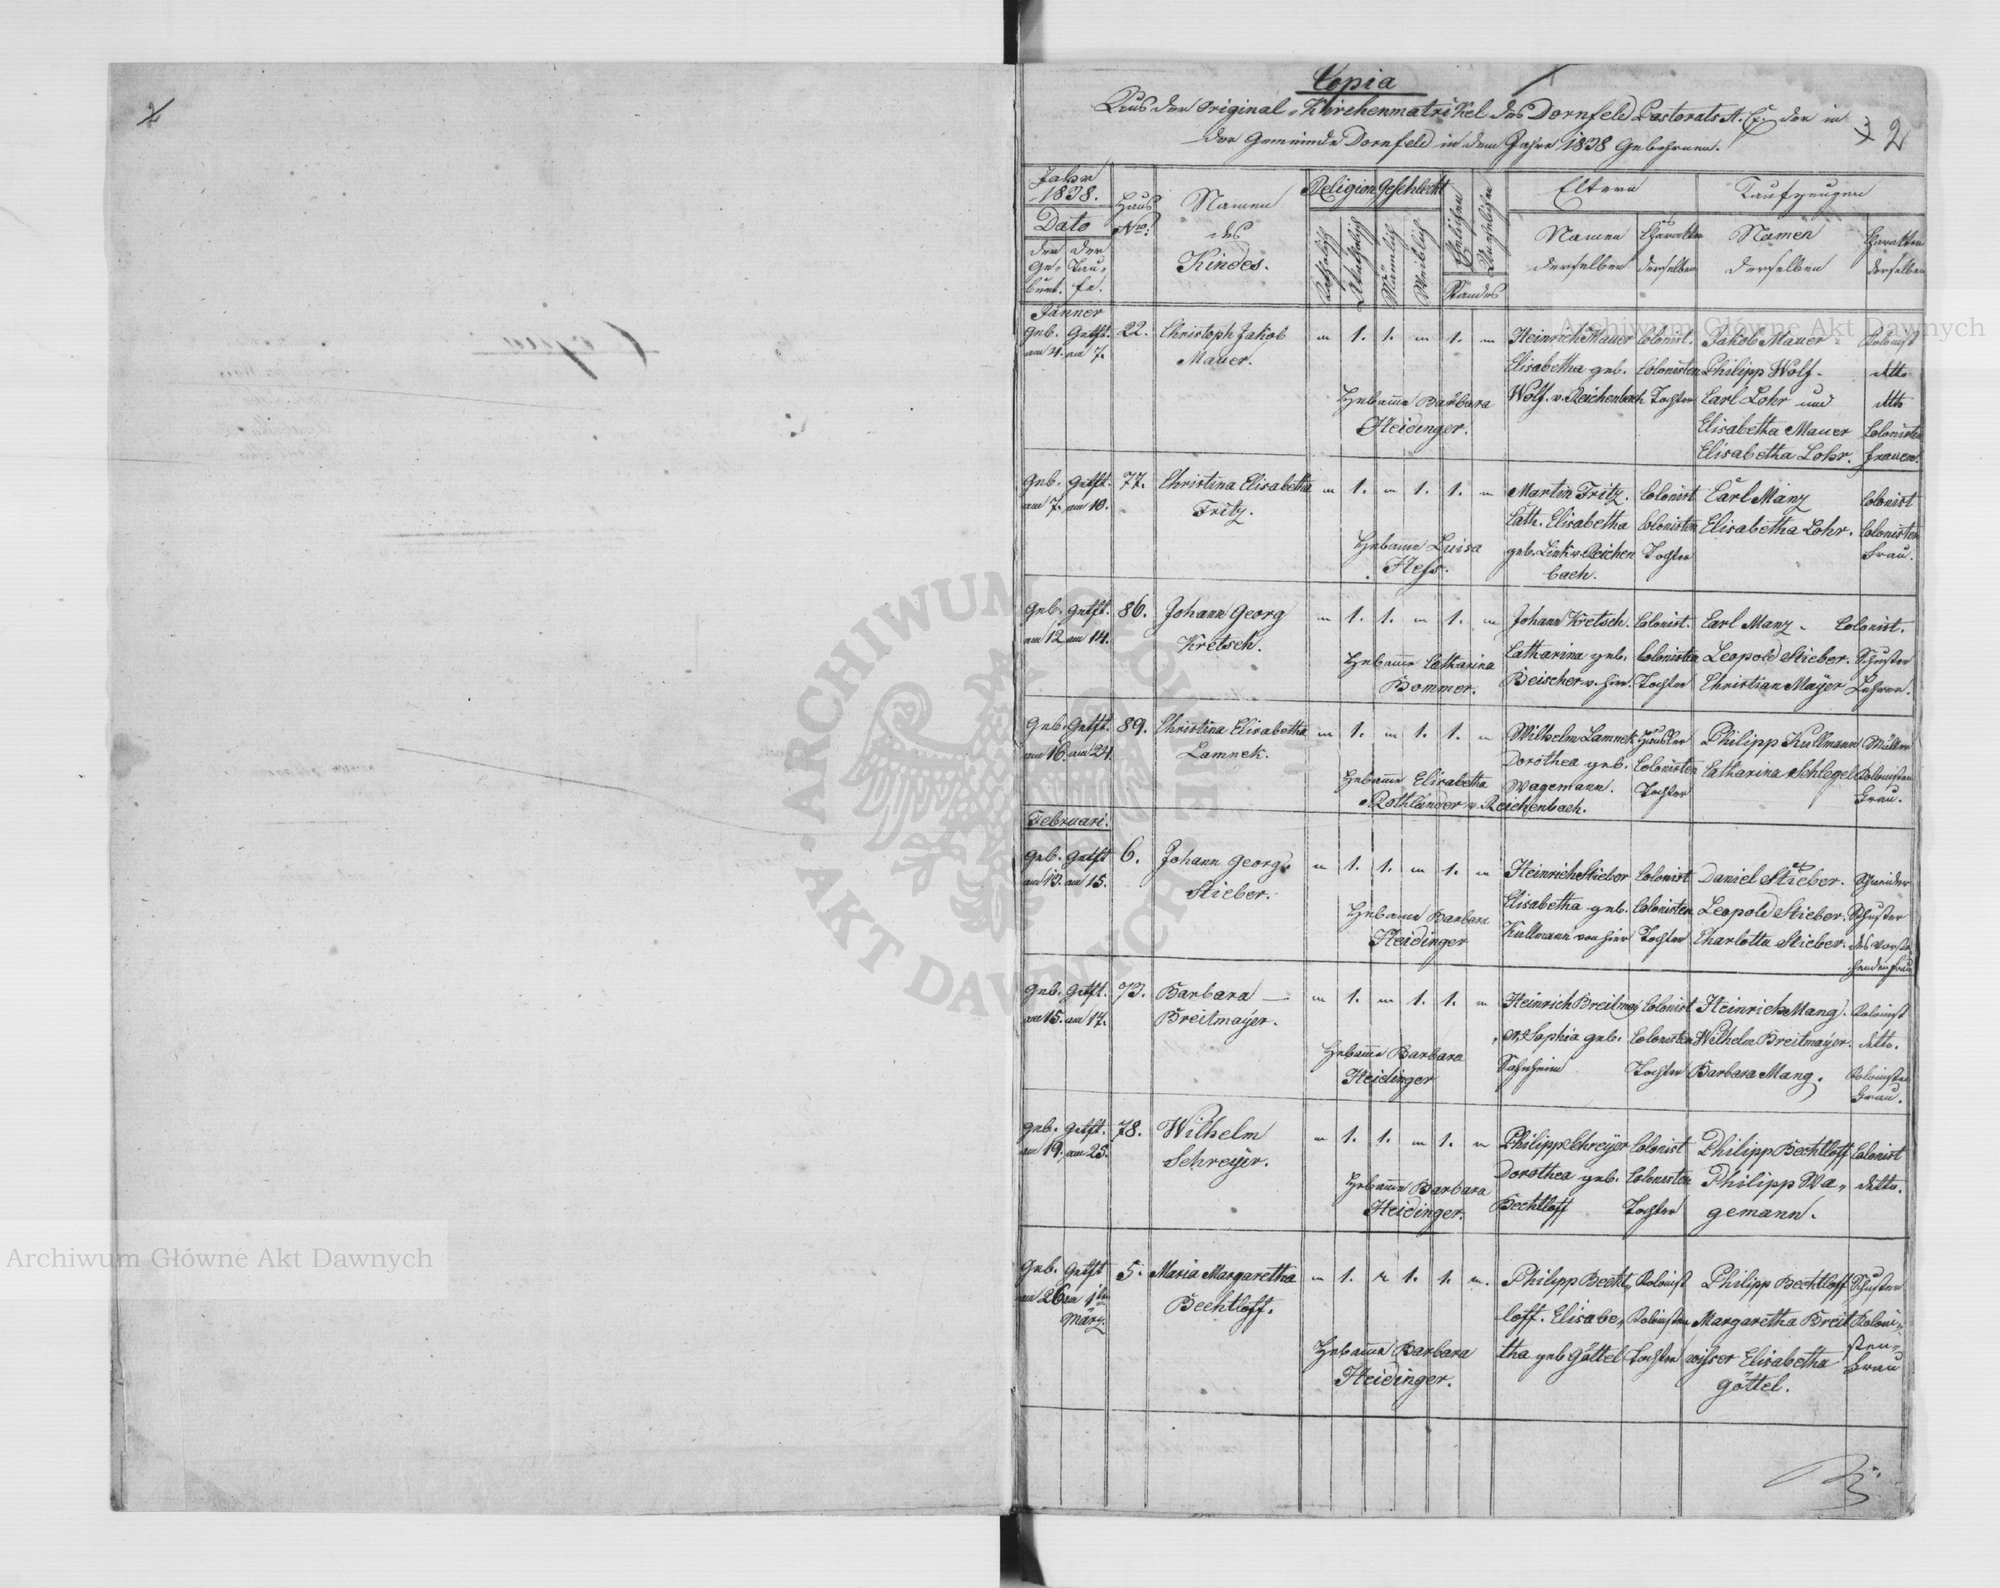 Copia
Aus der Original-Kirchenmatrikel des Dornfeld Pastorats A. C. der in
der Gemeinde Dornfeld in dem Jahre 1838 Gebohrnen.
2
Jahr 1838.
Dato
der Geburt. der Taufe.
Haus Nro:
Namen des Kindes.
Religion
Geschlecht
Männlich
Weiblich
Ehelichen
Unehelichen
Standes
Eltern
Namen derselben
Charakter derselben
Taufzeugen
Namen derselben
Charakter derselben
Jänner
Geb. Getft. 22. Christoph Jakob 1. 1. 1. Heinrich Mauer Colonist. Jakob Mauer Colonist
am 4. am 7. Mauer. Elisabetha geb. Colonisten Philipp Wolf. dtto
Hebame Barbara Wolf. v. Reichenbach Tochter Carl Lohr und dtto
Heidinger. Elisabetha Mauer Colonisten
Elisabetha Lohr. frauen.
Geb. Getft. 77. Christina Elisabetha 1. 1. 1. Martin Fritz. Colonist Carl Manz Colonist
am 7. am 10. Fritz. Cath. Elisabetha Colonisten Elisabetha Lohr. Colonisten
Hebame Luisa geb. Link v. Reichen Tochter Frau.
Hess. bach.
Geb. Getft. 86. Johann Georg 1. 1. 1. Johann Kretsch. Colonist. Carl Manz Colonist.
am 12 am 14. Kretsch. Catharina geb. Colonisten Leopold Stieber. Schuster
Hebame Catharina Beischer v. hier. Tochter Christian Mayer Lehrer.
Bommer.
Geb. Getft. 89. Christina Elisabetha 1. 1. 1. Wilhelm Lamnek Häusler Philipp Kullmann Müller
am 16. am 24. Lamnek. Dorothea geb. Colonisten Catharina Schlegel Colonisten
Hebame Elisabetha Wagemann. Tochter Frau.
Rothländer v. Reichenbach.
Februari.
Geb. Getft 6. Johann Georg 1. 1. 1. Heinrich Stieber Colonist Daniel Stieber. Schneider
am 13. am 15. Stieber. Elisabetha geb. Colonisten Leopold Stieber. Schuster
Hebame Barbara Kullmann von hier Tochter Charlotta Stieber. des vorste
Heidinger henden Frau
Geb. Getft. 73. Barbara — 1. 1. 1. Heinrich Breitmay Colonist Heinrich Mang. Colonist
am 15. am 17. Breitmayer. er, Sophia geb. Colonisten Wilhelm Breitmayer. detto.
Hebame Barbara Tochter Barbara Mang. Colonisten
Heidinger Frau.
Geb. Getft. 78. Wilhelm 1. 1. 1. Philipp Schreyer Colonist Philipp Bechtloff Colonist
am 19. am 25. Schreyer. Dorothea geb. Colonisten Philipp Wa- detto.
Hebame Barbara Bechtloff Tochter gemann.
Heidinger.
Geb. Getft 5. Maria Margaretha 1. 1. 1. Philipp Becht- Colonist Philipp Bechtloff Schuster
am 26 am 1ten März. Bechtloff. loff. Elisabe- Colonisten Margaretha Breit Coloni-
Hebame Barbara tha geb Göttel Tochter wisser Elisabetha sten-
Heidinger. Göttel. Frau
Archiwum Główne Akt Dawnych
Archiwum Główne Akt Dawnych
ARCHIWUM GŁÓWNE AKT DAWNYCH